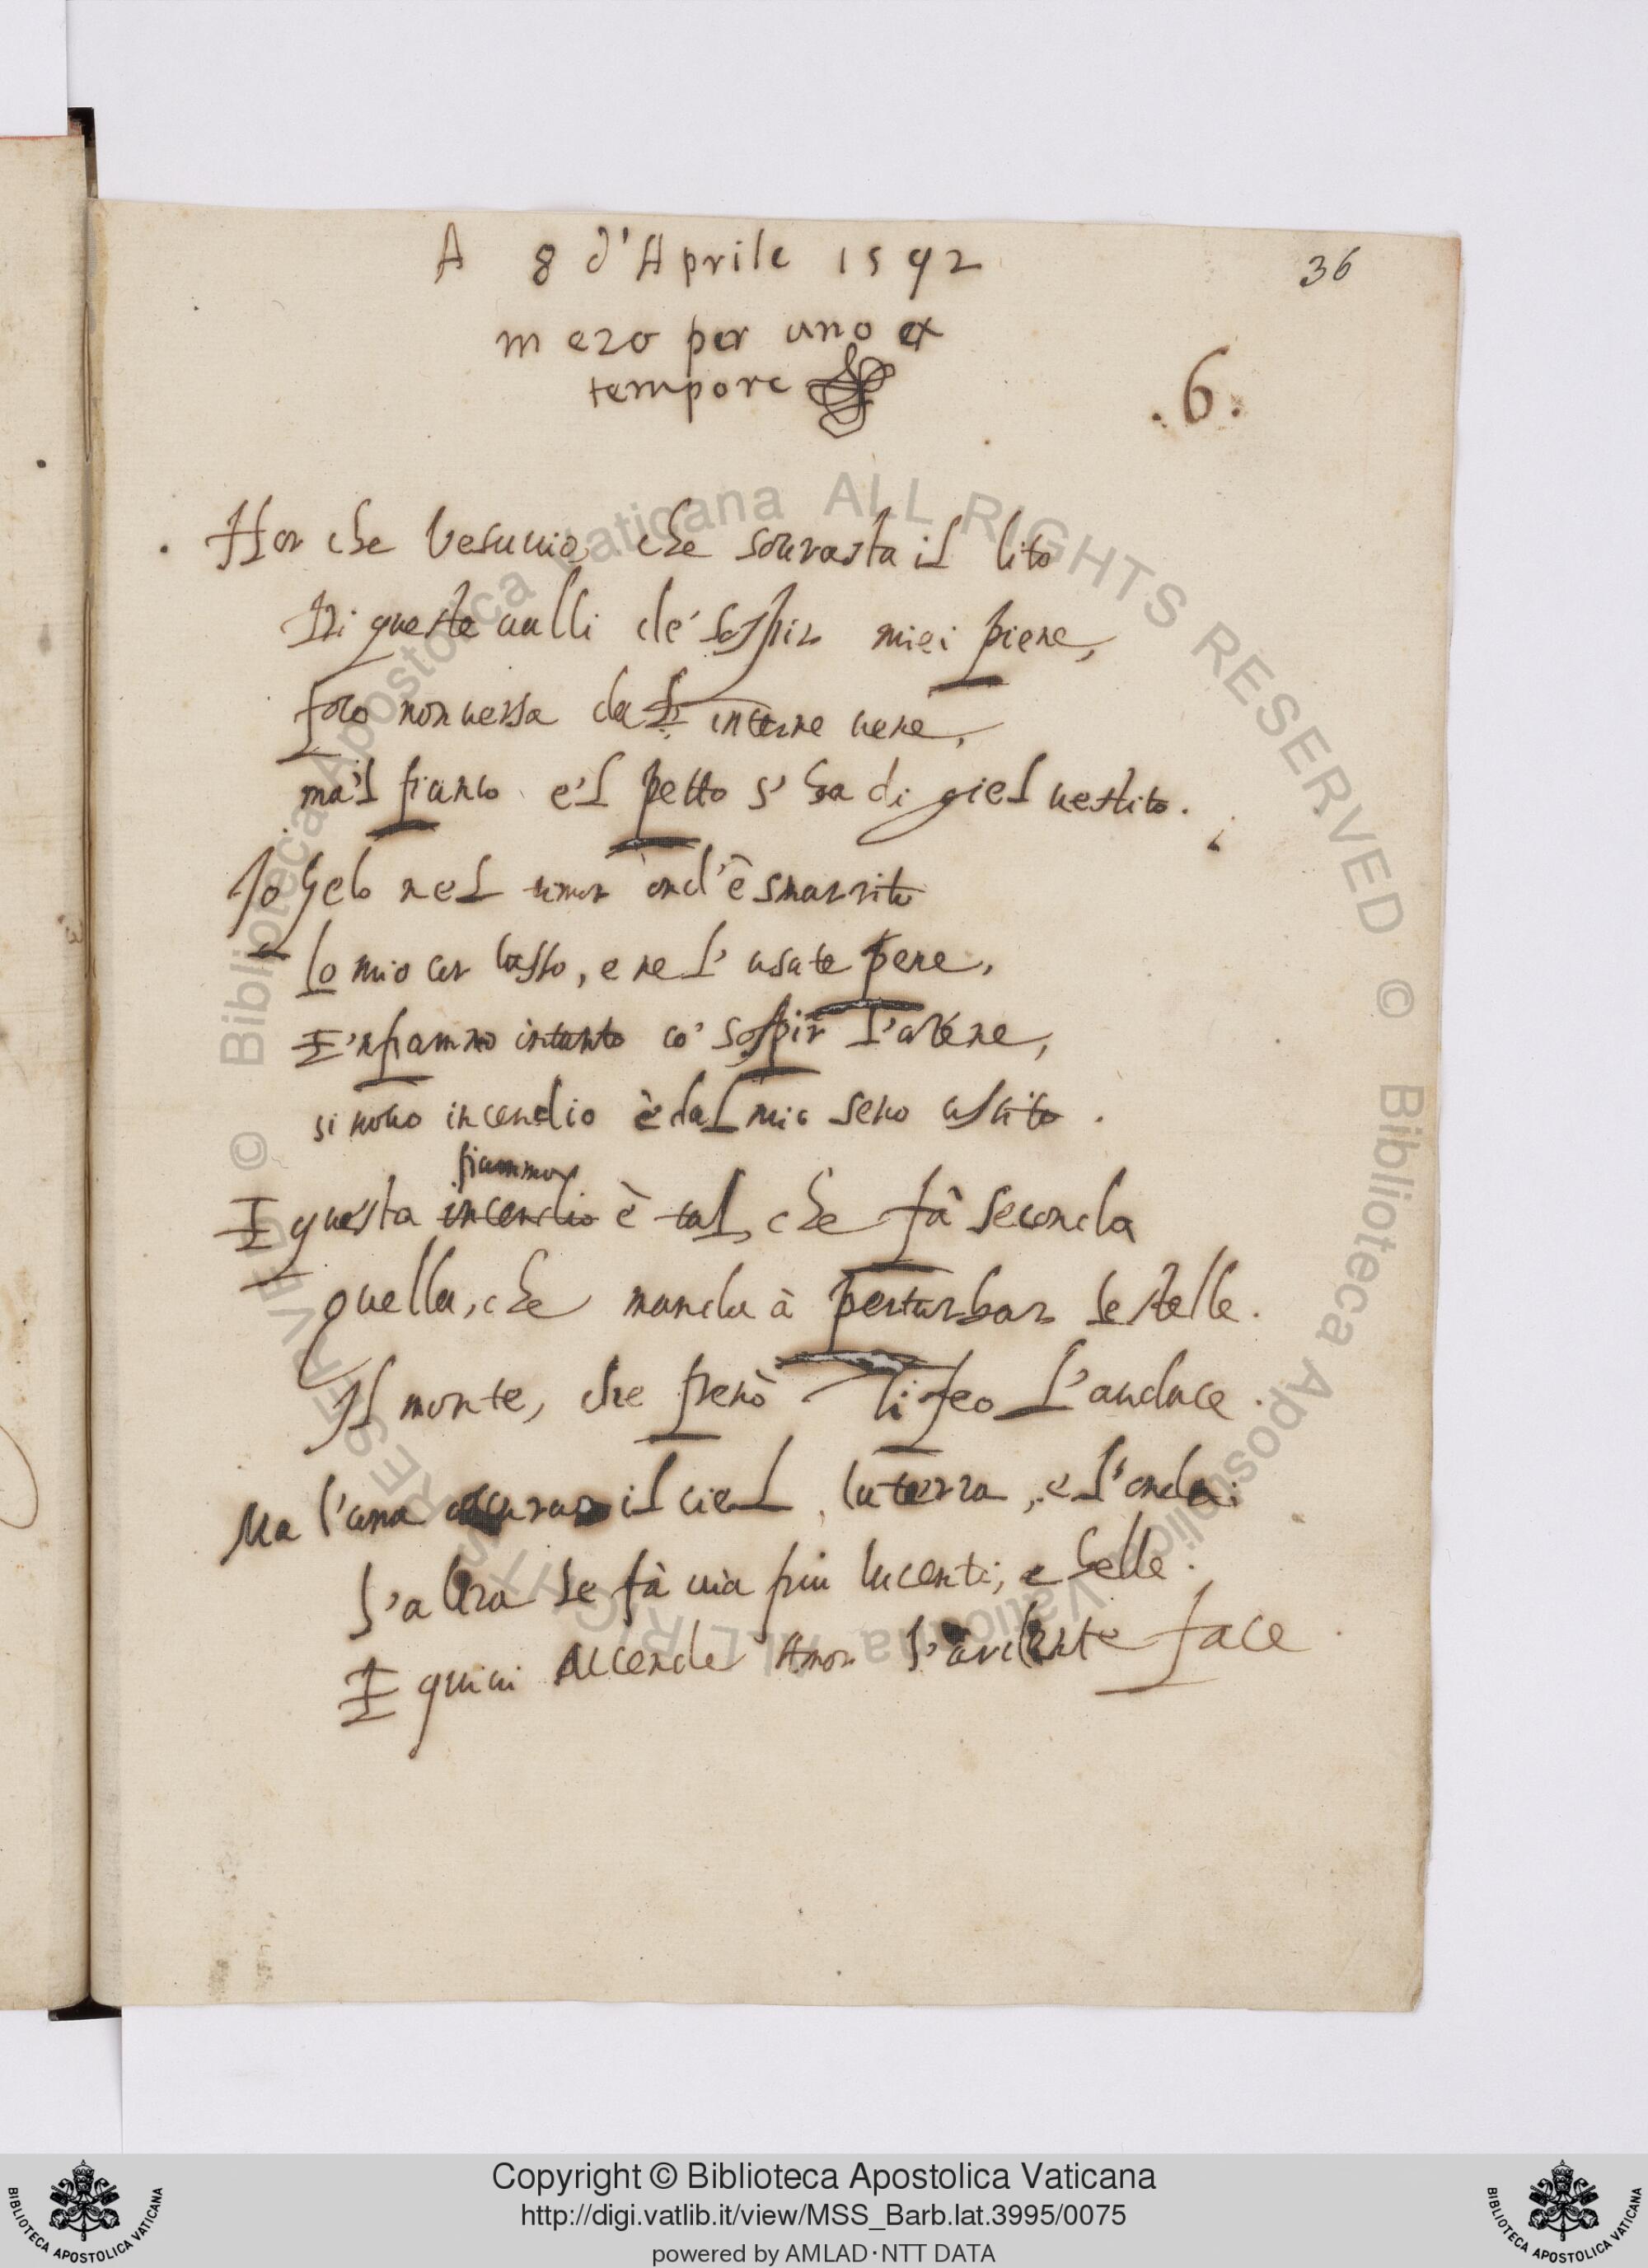 A 8 d'Aprile 1592
36
mezo per uno ex
tempore
.6.
Hor che Vesuuio, che sourasta il lito
Di queste ualli de' sospir miei piene,
foco non uersa da l' interne uene,
ma'l fianco e'l petto s' ha di giel uestito.
Io gelo nel timor ond' è smarrito
lo mio cor lasso, e ne l' usate pene,
E 'nfiammo intanto co' sospir l' arene,
si nouo incendio è dal mio seno uscito.
fiamma
E questa incendio è tal, che fà seconda
quella, che manda à perturbar le stelle.
Il monte, che frenò Tifeo l' audace.
Ma l'una oscura il ciel, la terra, e l' onda:
l' altra le fà uia piu lucenti, e belle.
E quiui accende Amor l' ardente face
Copyright © Biblioteca Apostolica Vaticana
http://digi.vatlib.it/view/MSS_Barb.lat.3995/0075
powered by AMLAD·NTT DATA
BIBLIOTECA APOSTOLICA VATICANA
BIBLIOTECA APOSTOLICA VATICANA
© Biblioteca Apostolica Vaticana ALL RIGHTS RESERVED © Biblioteca Apostolica Vaticana ALL RIGHTS RESERVED